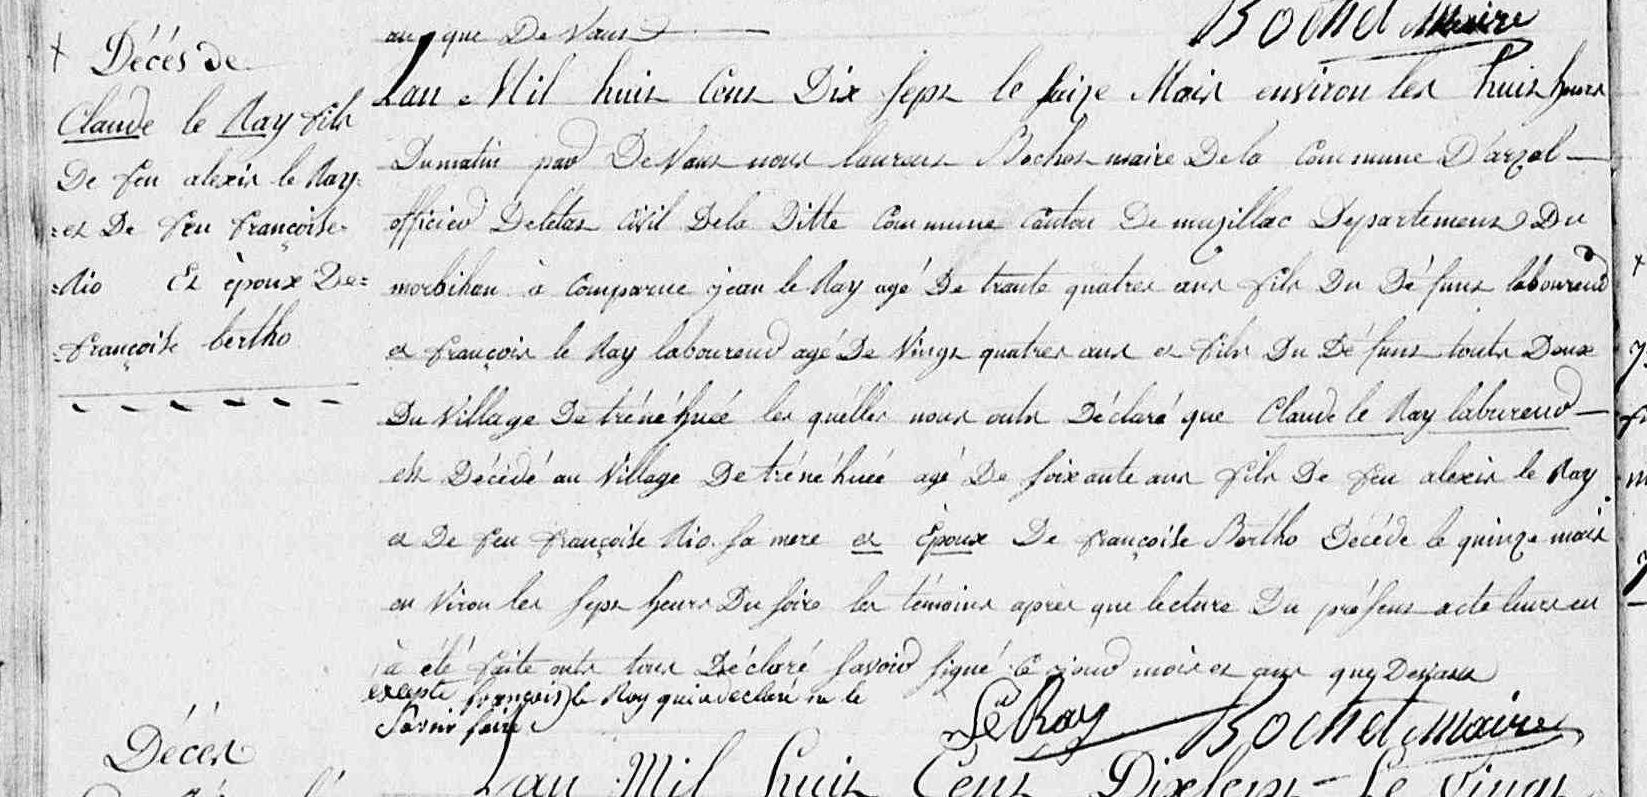 an que De Vans
Bochet Maire
+ Décés de
Claude le Ray fils
De feu alexis le Ray
=et De feu françoise
=Rio Et èpoux De=
=françoise bertho
Lan Mil huit Cens Dix Sept le Saize Mais environ les huit heurs
Dumatin pard DeVans nous laurens Bochet maire Dela Commune D'arzal —
officier Deletat Civil Dela Ditte Commune Canton De muzillac Departement Du
morbihan à Comparue jean le Ray agé De trante quatres ans fils Du Défunt laboureur
et françois le Ray laboureur agé De Vingt quatres ans et fils Du Défunt touts Deux
Du Village De tréné'hué les quélles nous onts Déclaré que Claude le Ray labureur —
est Décédé au Village De tréné'hué agé De Soixante ans fils De feu alexis le Ray
et De feu françoise Rio Sa mere et Époux De françoise Bertho Décéde le quinze mais
en Viron les Sept heurs Du Soire les témoins après que lecture Du présent acte leurs en
à été faite onts tous Déclaré Savoir Signé Ce jour mois et ans que Dessus
excepté françois le Ray qui a declaré ne le
Savoir faire
Le Ray Bochet Maire
Décés
Lan Mil huit Cens DixSept — Le Vingt